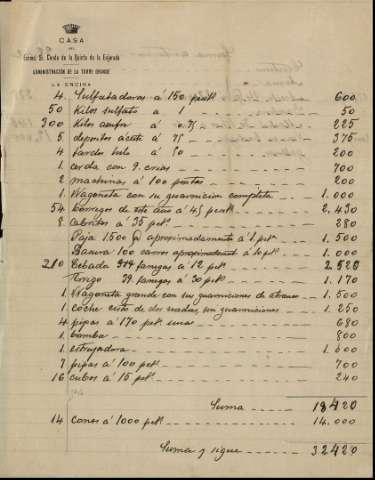 CASA
DEL
Excmo. Sr. Conde de la Quinta de la Enjarada
ADMINISTRACIÓN DE LA TORRE GRANDE
LA ENCINA
4. Sulfatadoras á 150 pesetas 600
50 Kilos sulfato á 1 50
300 Kilos azufre á 0.75 225
5 depositos áceite á 75 375
4 fardos hilo á 50 200
1 cerda con 9. crias 700
2 maquinas á 100 pesetas 200
1. Wagoneta con su guarnicion completa 1.000
54 borregos de este año á 45 peset 2.430
8 Cabritos á 35 pet. 280
Paja 1.500 @ aproximadamente á 1 pet. 1.500
Basura 100 carros aproximadament á 10 pet. 1.000
210 Cebada fanegas á 12 pet. 2.520
Trigo 39. fanegas á 30 pet. 1.170
1. Wagoneta grande con sus guarniciones de 1.500
1. Coche cesto de dos ruedas con guarniciones 1.250
4 pipas á 170 pet. una 680
1 bomba 800
1 estrujadora 1.000
7 pipas á 100 pet. 700
16 cubos á 15 pet. 240
Suma 18420
14 Conos á 1000 pet. 14.000
Suma y sigue 32420